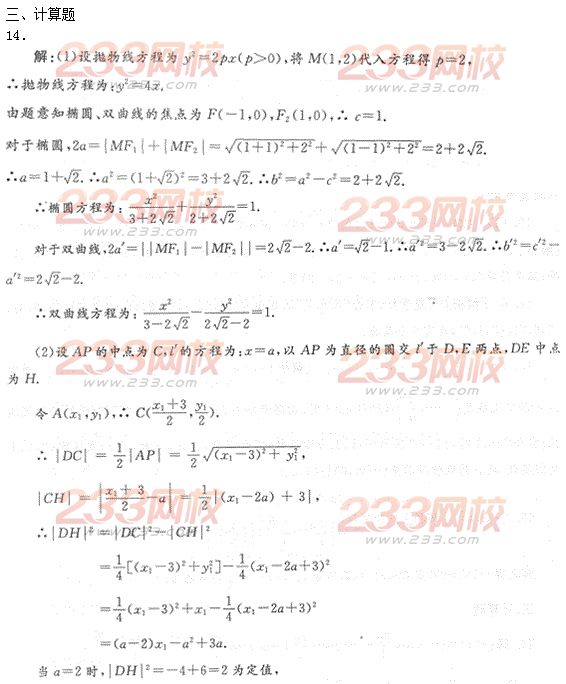 三、计算题
14.
解:(1)设抛物线方程为 y²=2px(p>0),将 M(1,2)代入方程得 p=2,
∴抛物线方程为:y²=4x.
由题意知椭圆、双曲线的焦点为 F(-1,0),F₂(1,0),∴ c=1.
对于椭圆,2a=|MF₁|+|MF₂|=√((1+1)²+2²)+√((1-1)²+2²)=2+2√2.
∴a=1+√2.∴a²=(1+√2)²=3+2√2.∴b²=a²-c²=2+2√2.
∴椭圆方程为:x²/(3+2√2)+y²/(2+2√2)=1.
对于双曲线,2a′=||MF₁|-|MF₂||=2√2-2.∴a′=√2-1.∴a′²=3-2√2.∴b′²=c′²-
a′²=2√2-2.
∴双曲线方程为:x²/(3-2√2)-y²/(2√2-2)=1.
(2)设 AP 的中点为 C,l′的方程为:x=a,以 AP 为直径的圆交 l′于 D,E 两点,DE 中点
为 H.
令 A(x₁,y₁),∴ C((x₁+3)/2,y₁/2).
∴ |DC|=1/2|AP|=1/2√((x₁-3)²+y₁²),
|CH|=|(x₁+3)/2-a|=1/2|(x₁-2a)+3|,
∴|DH|²=|DC|²-|CH|²
=1/4[(x₁-3)²+y₁²]-1/4(x₁-2a+3)²
=1/4(x₁-3)²+x₁-1/4(x₁-2a+3)²
=(a-2)x₁-a²+3a.
当 a=2 时,|DH|²=-4+6=2 为定值,
233网校
www.233.com